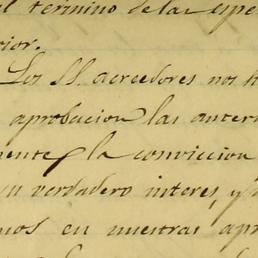 el termino de las espe
rior.
Los SS. acreedores nos h
aprobacion las anter
mente y la conviccion
su verdadero interes, y
mos en nuestras apr